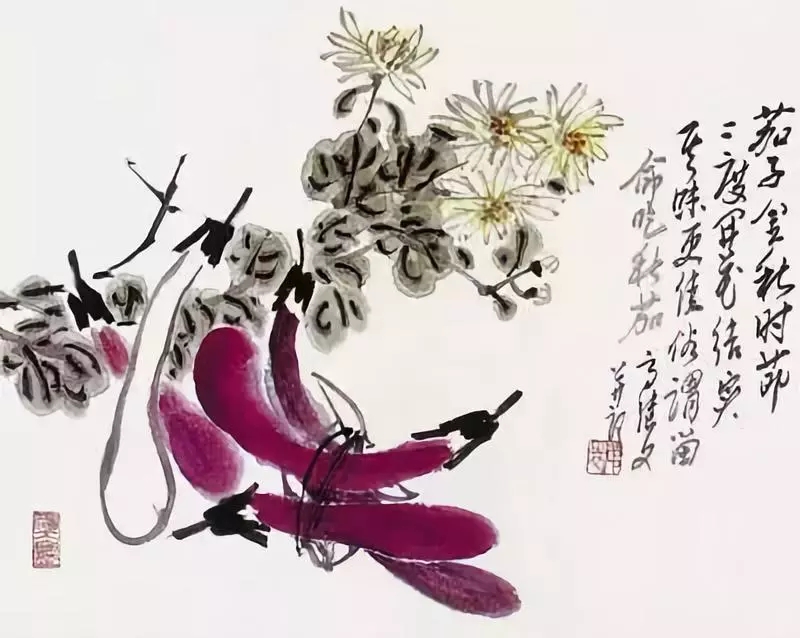 茄子金秋时节
二度开花结实
其味更佳俗谓畄
命吃秋茄
并记